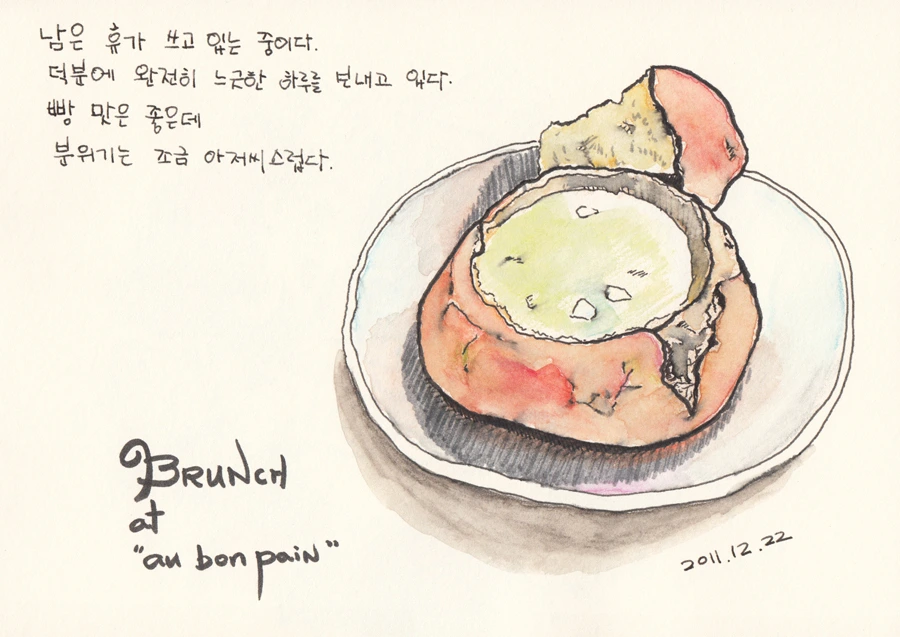 남은 휴가 쓰고 있는 중이다.
덕분에 완전히 느긋한 하루를 보내고 있다.
빵 맛은 좋은데
분위기는 조금 아저씨스럽다.
BRUNCH
at
"au bon pain"
2011.12.22